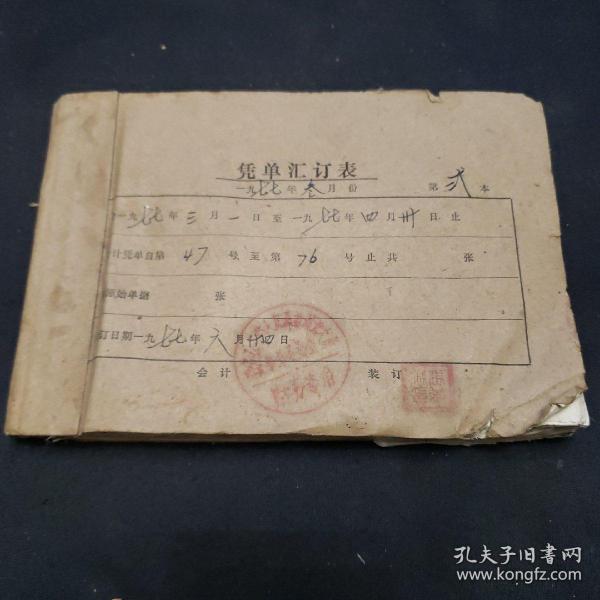 凭单汇订表
一九七七年叁月份 第贰本
一九七七年三月一日至一九七七年四月卅日止
计凭单自第47号至第76号止共 张
原始单据 张
订日期一九七七年六月廿四日
会计 装订
孔夫子旧书网
www.kongfz.com